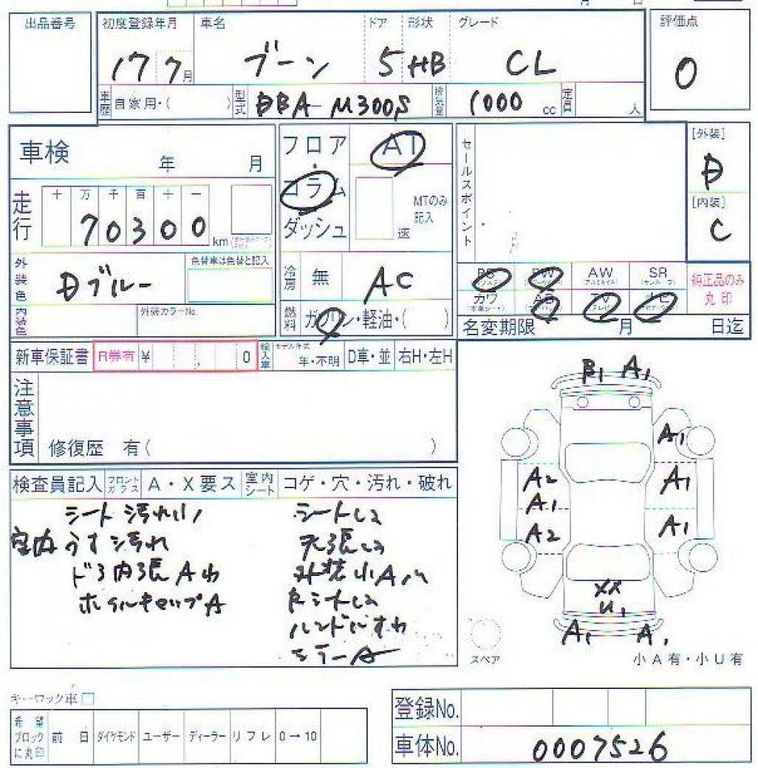 出品番号 初度登録年月 車名 ドア 形状 グレード 評価点
17 7月 ブーン 5 HB CL 0
車歴 自家用・( ) 型式 DBA-M300S 排気量 1000 cc 定員 人
車検 年 月
フロア・コラム ダッシュ
AT
MTのみ記入
速
セールスポイント
[外装]
D
[内装]
C
走行 十 万 千 百 十 一
70300 km
外装色 Dブルー 色替車は色替と記入
内装色 外装カラーNo.
冷房 無 AC
燃料 ガソリン・軽油・( )
PS PW AW SR
カワ AB
純正品のみ丸印
名変期限 月 日迄
新車保証書 R券有 ¥ 0 輸入車 モデル年式 年・不明 D車・並 右H・左H
注意事項
修復歴 有( )
検査員記入 フロントガラス A・X要ス 室内シート コゲ・穴・汚れ・破れ
シート汚れ
シート
室内うす汚れ
ドア内張A
ホイルキャップA
ミラーA
B1 A1
A1
A2 A1
A1
A2 A1
XX
U1
A1 A1
スペア
小A有・小U有
キーロック車
希望ブロックに丸印 前日 ダイヤモンド ユーザー ディーラー リフレ 0→10
登録No.
車体No. 0007526